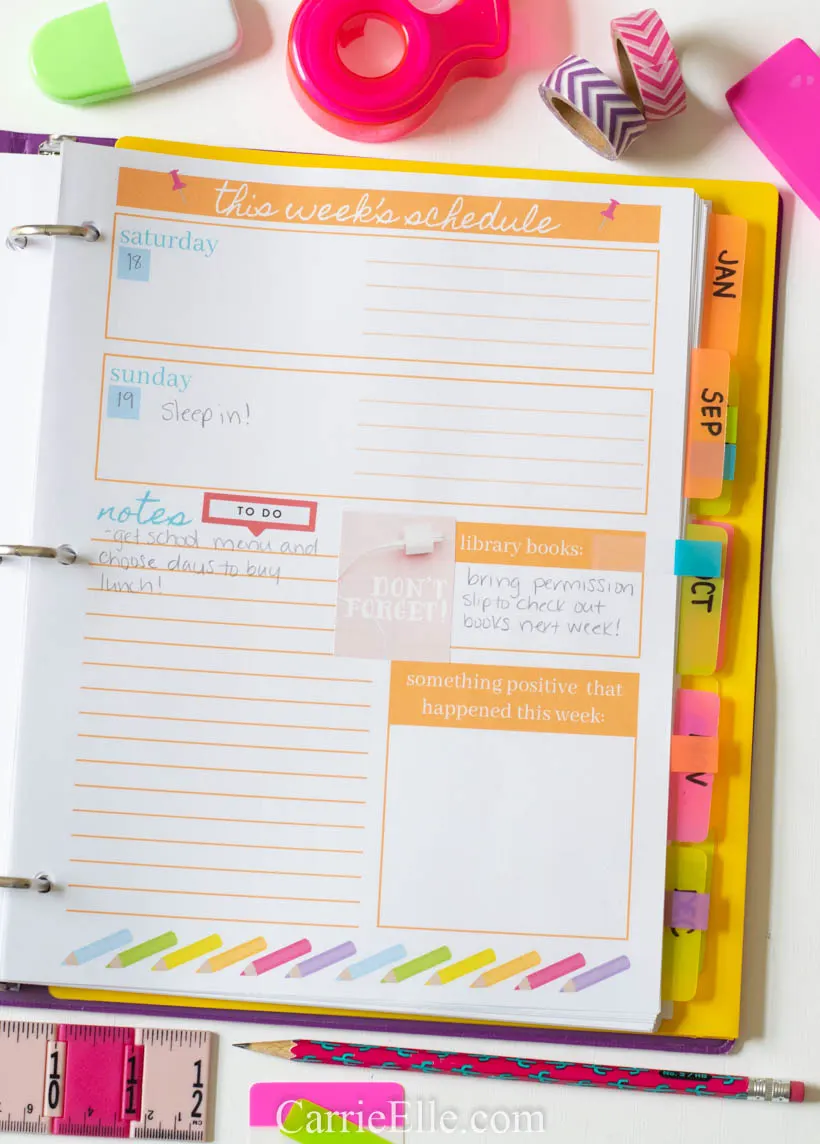 this week's schedule
saturday
18
sunday
19
Sleep in!
notes
TO DO
-get school menu and
choose days to buy
lunch!
DON'T
FORGET!
library books:
bring permission
slip to check out
books next week!
something positive that
happened this week:
JAN
SEP
OCT
10
11
12
6
4
2
No. 2/HB
CarrieElle.com